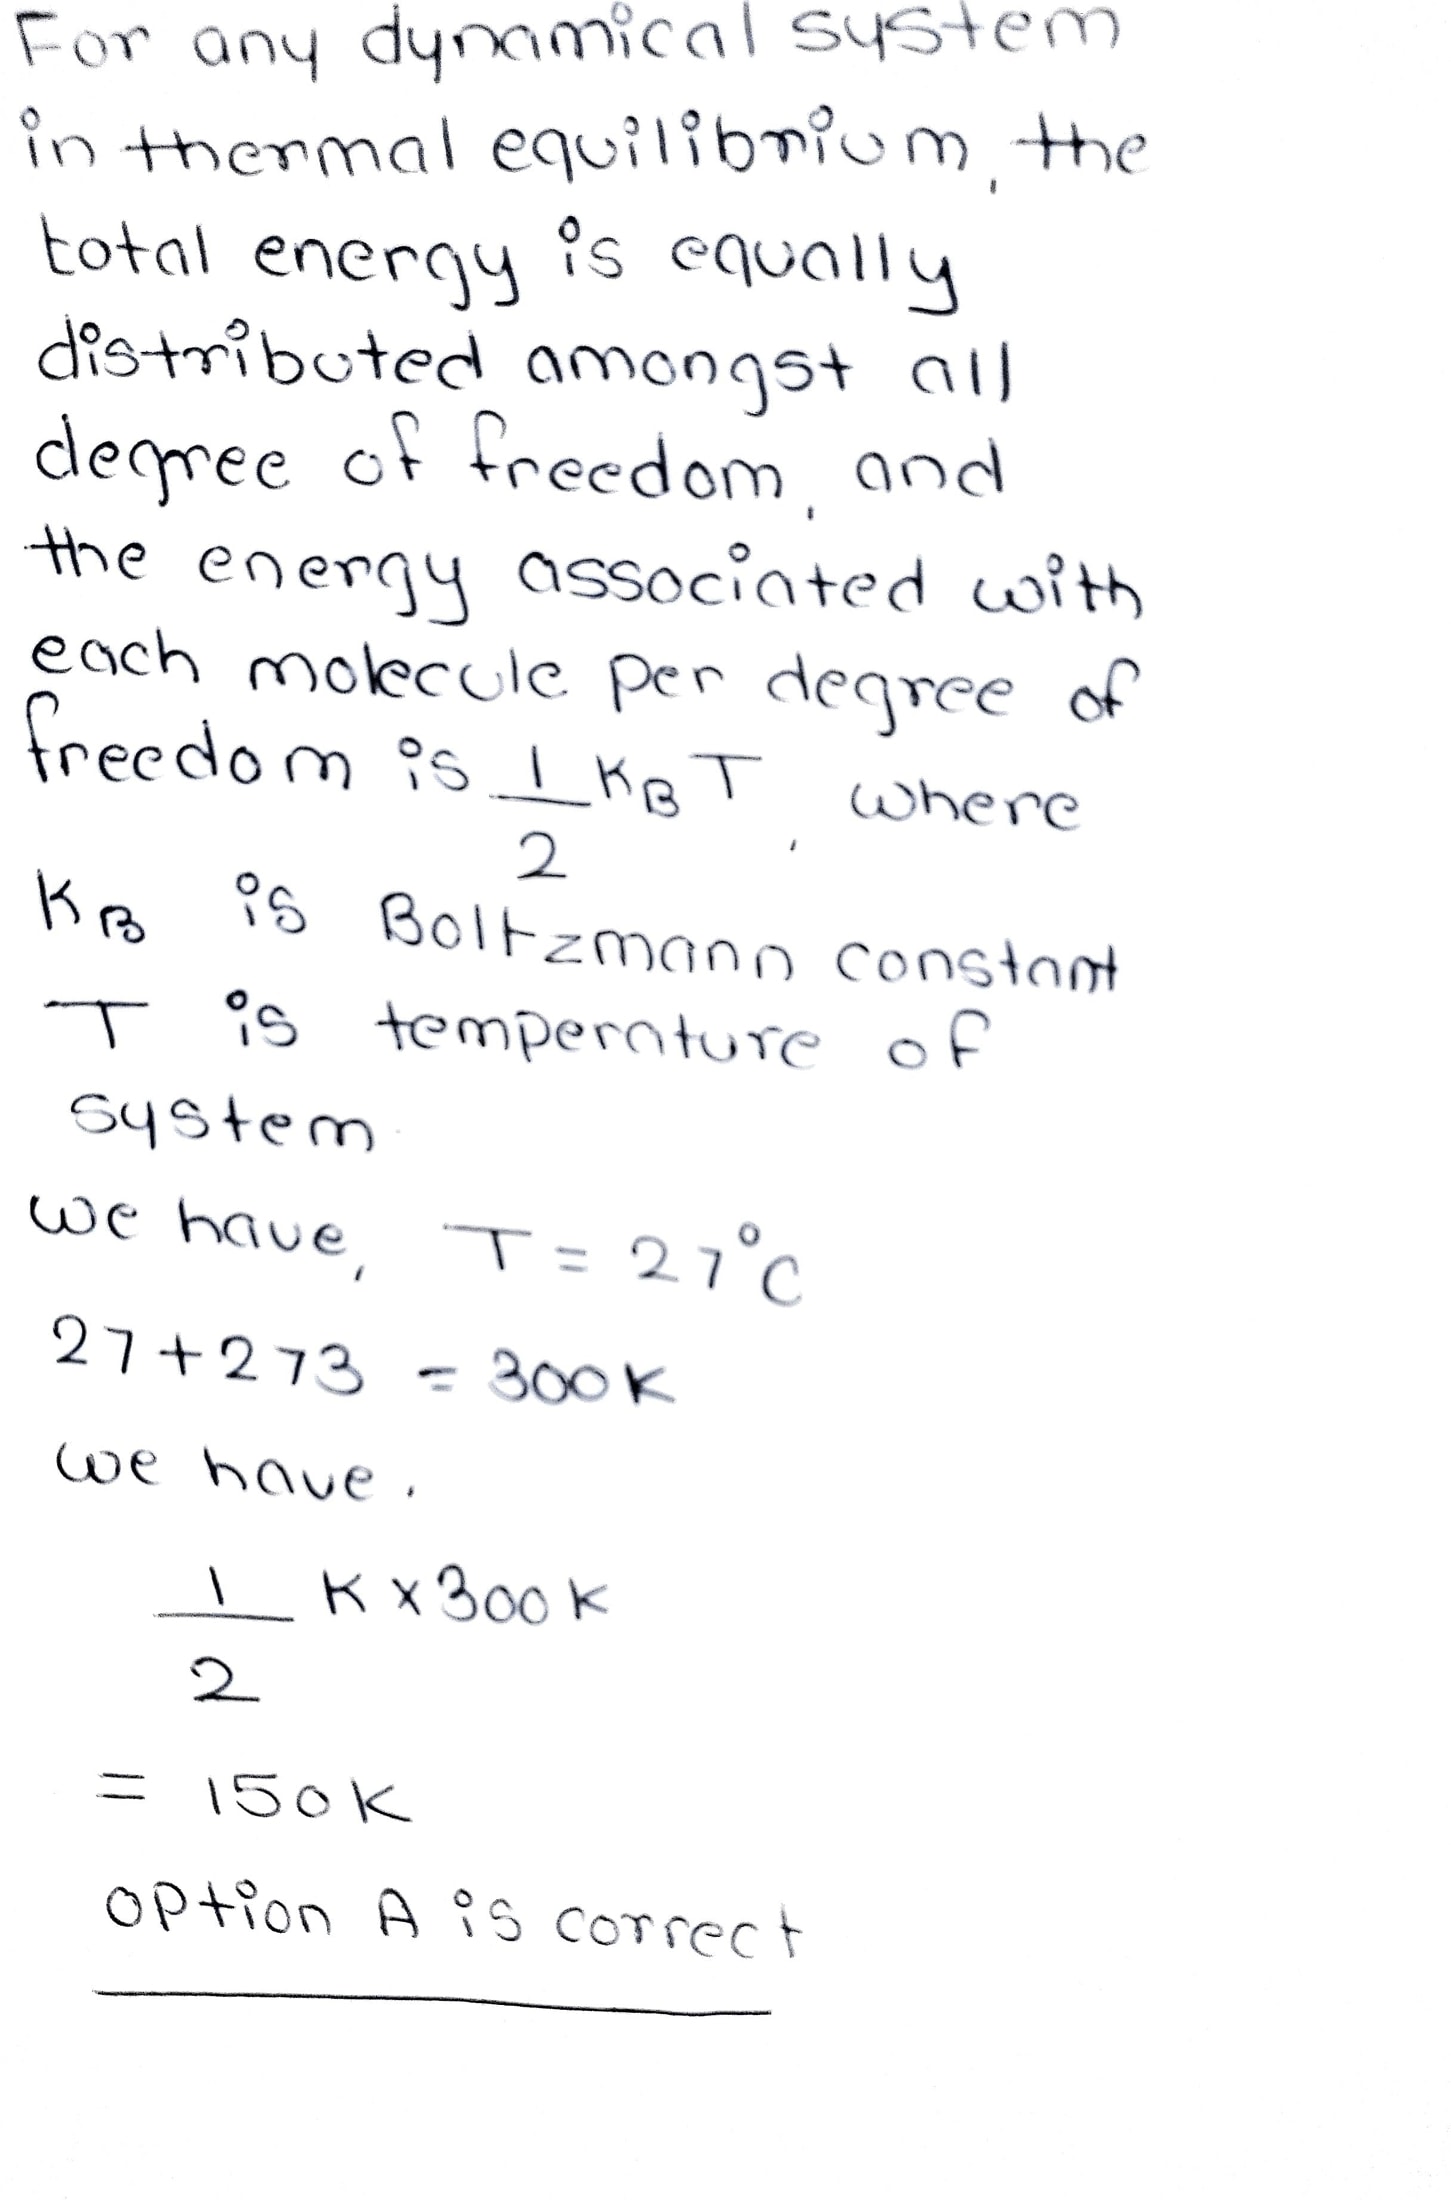 For any dynamical system
in thermal equilibrium, the
total energy is equally
distributed amongst all
degree of freedom, and
the energy associated with
each molecule per degree of
freedom is 1/2 KB T, where
KB is Boltzmann constant
T is temperature of
system
we have, T = 27°C
27+273 = 300K
we have.
1/2 K x 300 K
= 150K
option A is correct